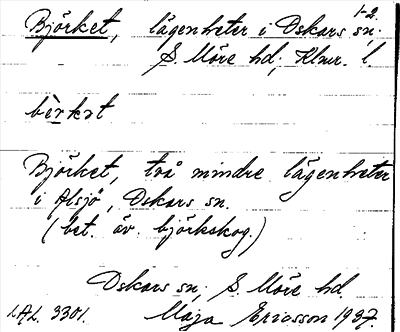 1-2.
Björket, lägenheter i Oskars sn;
S. Möre hd; Klmr. l.
bèrkət
Björket, två mindre lägenheter
i Alsjö, Oskars sn.
(bet. äv. björkskog.)
Oskars sn; S. Möre hd.
LAL. 3301. Maja Ericsson 1937.